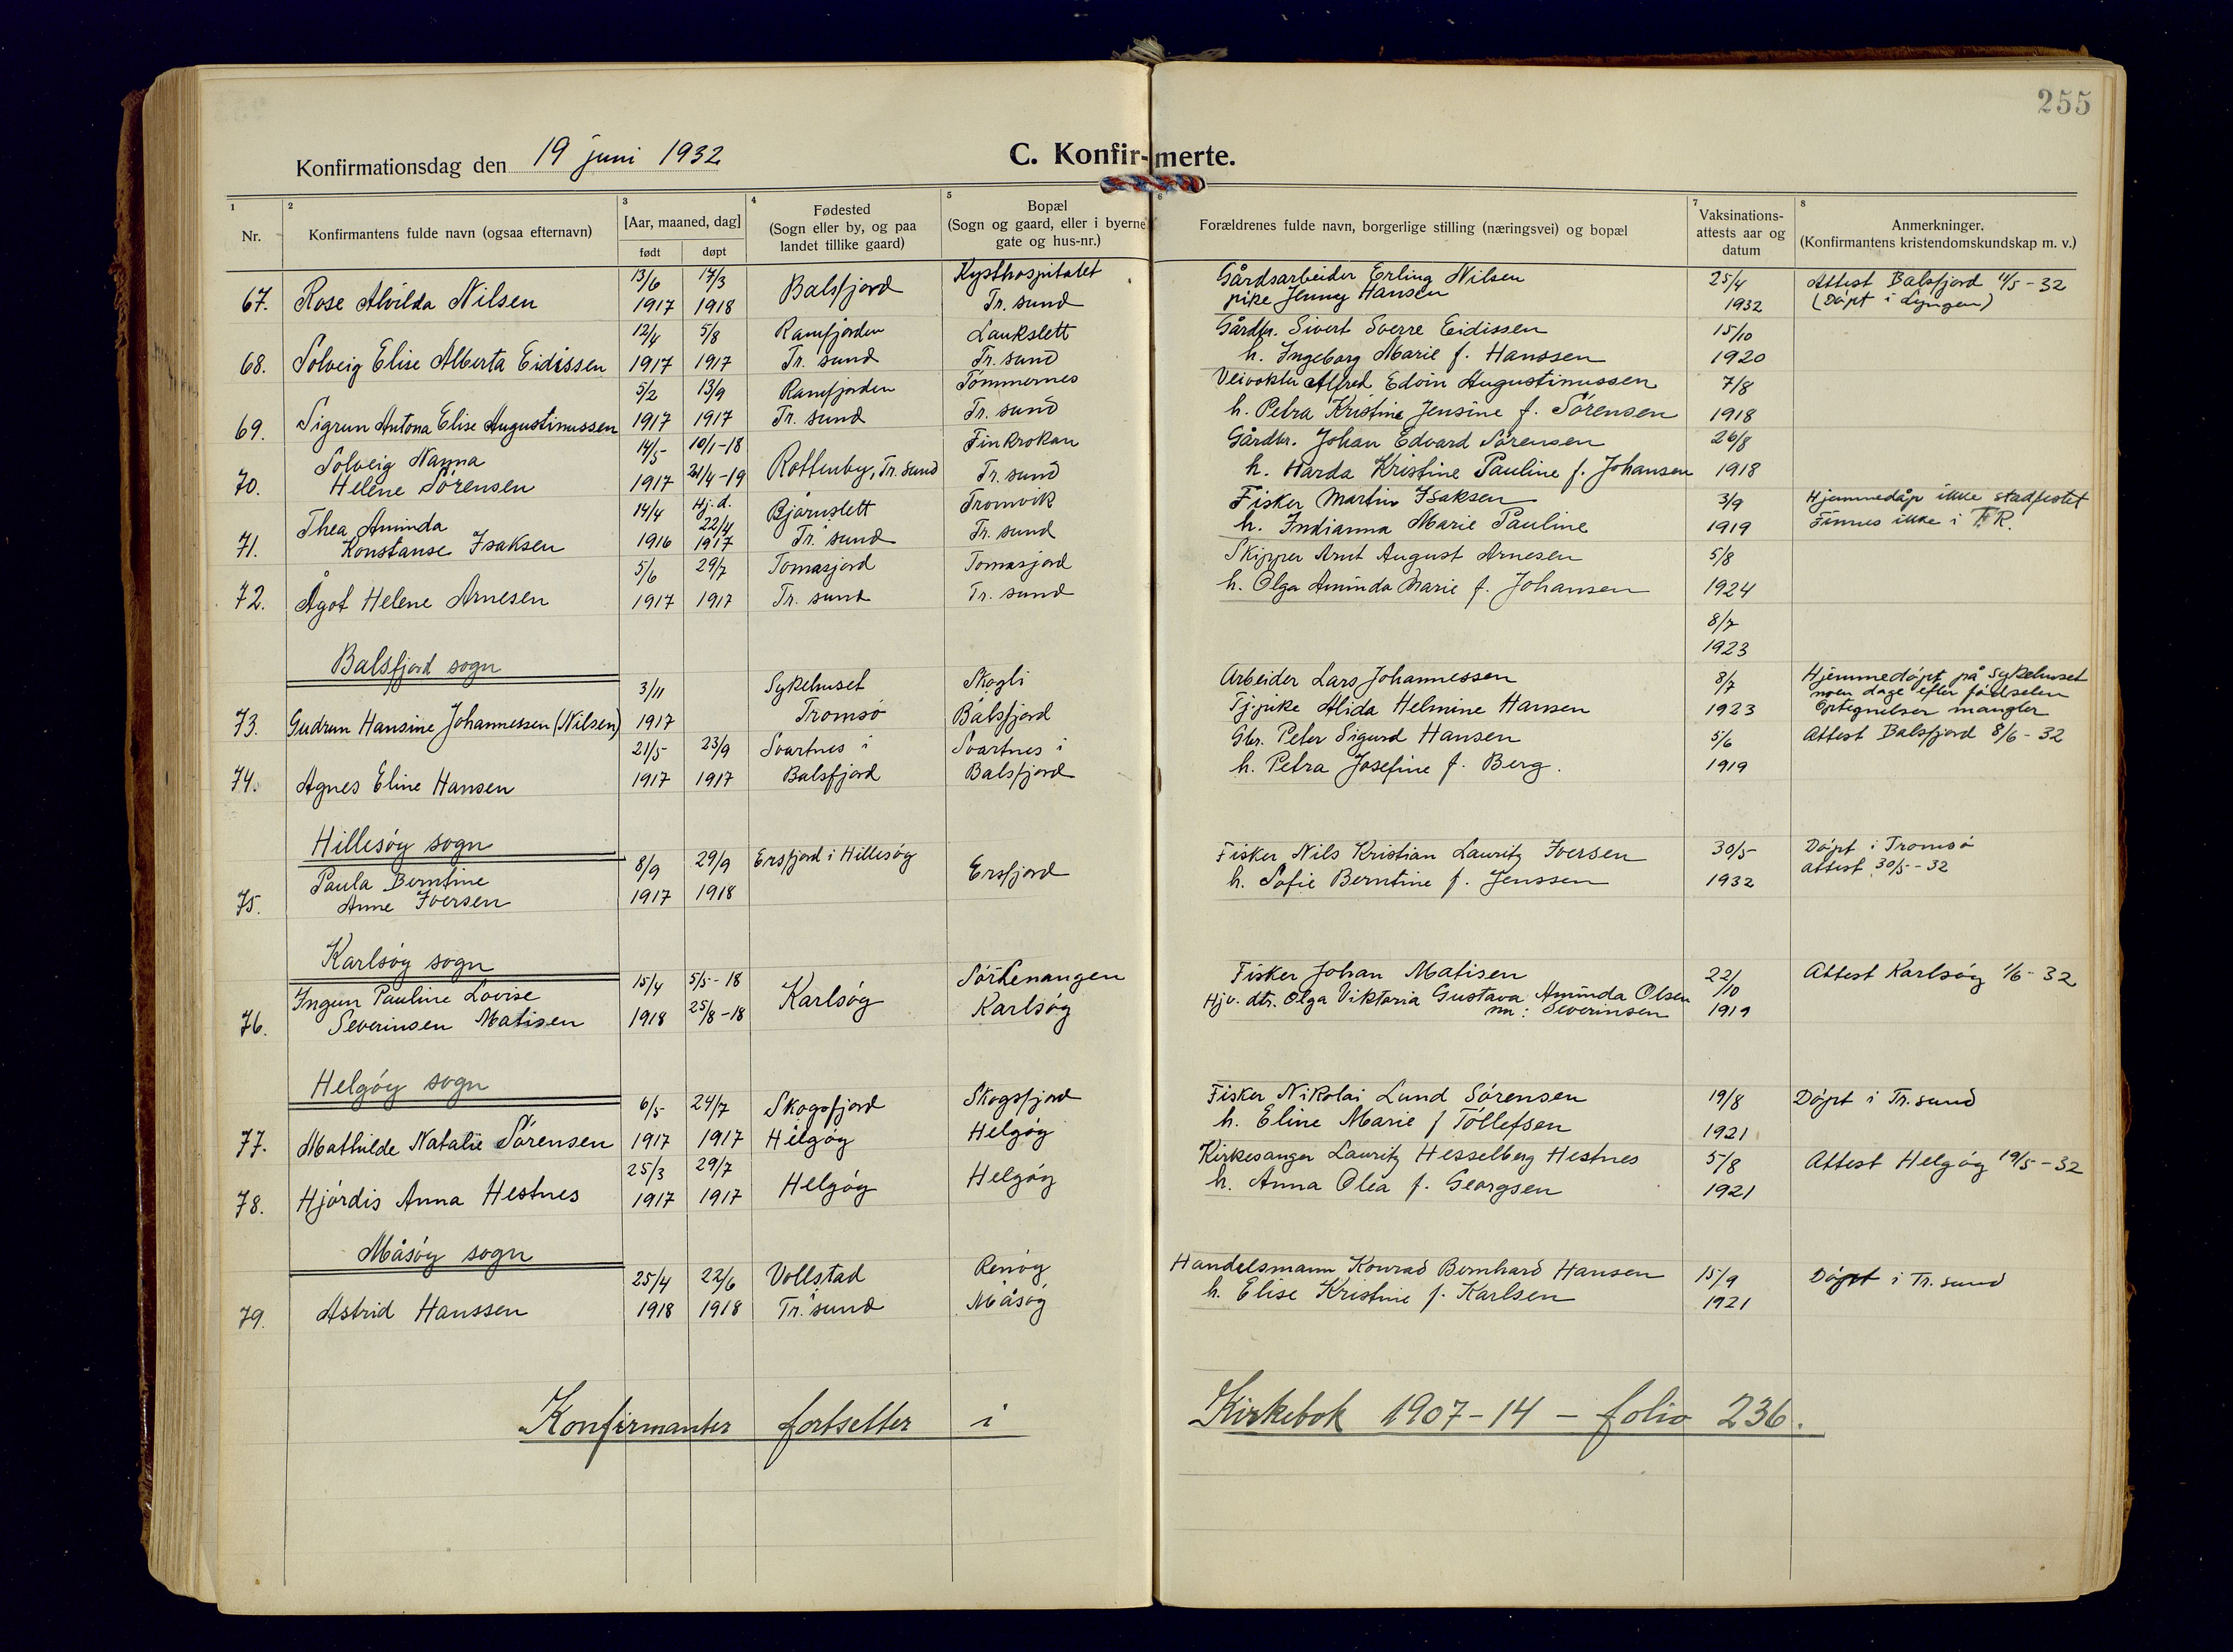 255
Konfirmationsdag den 19 juni 1932
C. Konfir-merte.
1 2 3 4 5 6 7 8
Nr.
Konfirmantens fulde navn (ogsaa efternavn)
[Aar, maaned, dag]
født døpt
Fødested
(Sogn eller by, og paa
landet tillike gaard)
Bopæl
(Sogn og gaard, eller i byerne
gate og hus-nr.)
Forældrenes fulde navn, borgerlige stilling (næringsvei) og bopæl
Vaksinations-
attests aar og
datum
Anmerkninger.
(Konfirmantens kristendomskundskap m. v.)
13/6 17/3 Kysthospitalet Gårdsarbeider Erling Nilsen 25/4 Attest Balsfjord 11/5-32
67. Rose Alvilda Nilsen 1917 1918 Balsfjord Tr. sund pike Jenny Hansen 1932 (Døpt i Lyngen)
12/4 5/8 Ramfjorden Laukslett Gårdbr. Sivert Sverre Eidissen 15/10
68. Solveig Elise Alberta Eidissen 1917 1917 Tr. sund Tr. sund h. Ingeborg Marie f. Hanssen 1920
5/2 13/9 Ramfjorden Tømmernes Veivokter Alfred Edvin Augustinussen 7/8
69. Sigrun Antona Elise Augustinussen 1917 1917 Tr. sund Tr. sund h. Petra Kristine Jensine f. Sørensen 1918
Solveig Nanna 14/5 10/1-18 Finkroken Gårdbr. Johan Edvard Sørensen 26/8
70. Helene Sørensen 1917 21/4-19 Rottenby, Tr. sund Tr. sund h. Harda Kristine Pauline f. Johansen 1918
Thea Aminda 14/4 Hj. d. Bjørnslett Tromvik Fisker Martin Isaksen 3/9 Hjemmedåp ikke stadfestet
71. Konstanse Isaksen 1916 22/4 1917 Tr. sund Tr. sund h. Indianna Marie Pauline 1919 Finnes ikke i FR.
5/6 29/7 Tomasjord Tomasjord Skipper Arnt August Arnesen 5/8
72. Ågot Helene Arnesen 1917 1917 Tr. sund Tr. sund h. Olga Aminda Marie f. Johansen 1924
8/7
1923
Balsfjord sogn
3/11 Sykehuset Skogli Arbeider Lars Johannessen 8/7 Hjemmedøpt på Sykehuset
noen dage efter fødselen
73. Gudrun Hansine Johannessen (Nilsen) 1917 Tromsø Balsfjord Tj.pike Alida Helmine Hansen 1923 Optegnelser mangler
21/5 23/9 Svartnes i Svartnes i Gbr. Peter Sigurd Hansen 5/6 Attest Balsfjord 8/6-32
74. Agnes Eline Hansen 1917 1917 Balsfjord Balsfjord h. Petra Josefine f. Berg. 1919
Hillesøy sogn
Paula Berntine 8/9 29/9 Ersfjord i Hillesøy Ersfjord Fisker Nils Kristian Lauritz Iversen 30/5 Døpt i Tromsø
75. Anne Iversen 1917 1918 h. Sofie Berntine f. Jenssen 1932 attest 30/5-32
Karlsøy sogn
Ingun Pauline Lovise 15/4 5/5-18 Karlsøy Sør-Lenangen Fisker Johan Matisen 22/10 Attest Karlsøy 1/6-32
76. Severinsen Matisen 1918 25/8-18 Karlsøy Hjv. dtr. Olga Viktoria Gustava Aminda Olsen 1919
nu: Severinsen
Helgøy sogn
6/5 24/7 Skogsfjord Skogsfjord Fisker Nikolai Lund Sørensen 19/8 Døpt i Tr. sund
77. Mathilde Natalie Sørensen 1917 1917 Helgøy Helgøy h. Eline Marie f Tøllefsen 1921
25/3 29/7 Kirkesanger Lauritz Hesselberg Hestnes 5/8 Attest Helgøy 19/5-32
78. Hjørdis Anna Hestnes 1917 1917 Helgøy Helgøy h. Anna Olea f. Georgsen 1921
Måsøy sogn
25/4 22/6 Vollstad Renøy Handelsmann Konrad Bernhard Hansen 15/9 Døpt i Tr. sund
79. Astrid Hanssen 1918 1918 Tr. sund Måsøy h. Elise Kristine f. Karlsen 1921
Konfirmanter fortsetter i Kirkebok 1907-14 - folio 236.